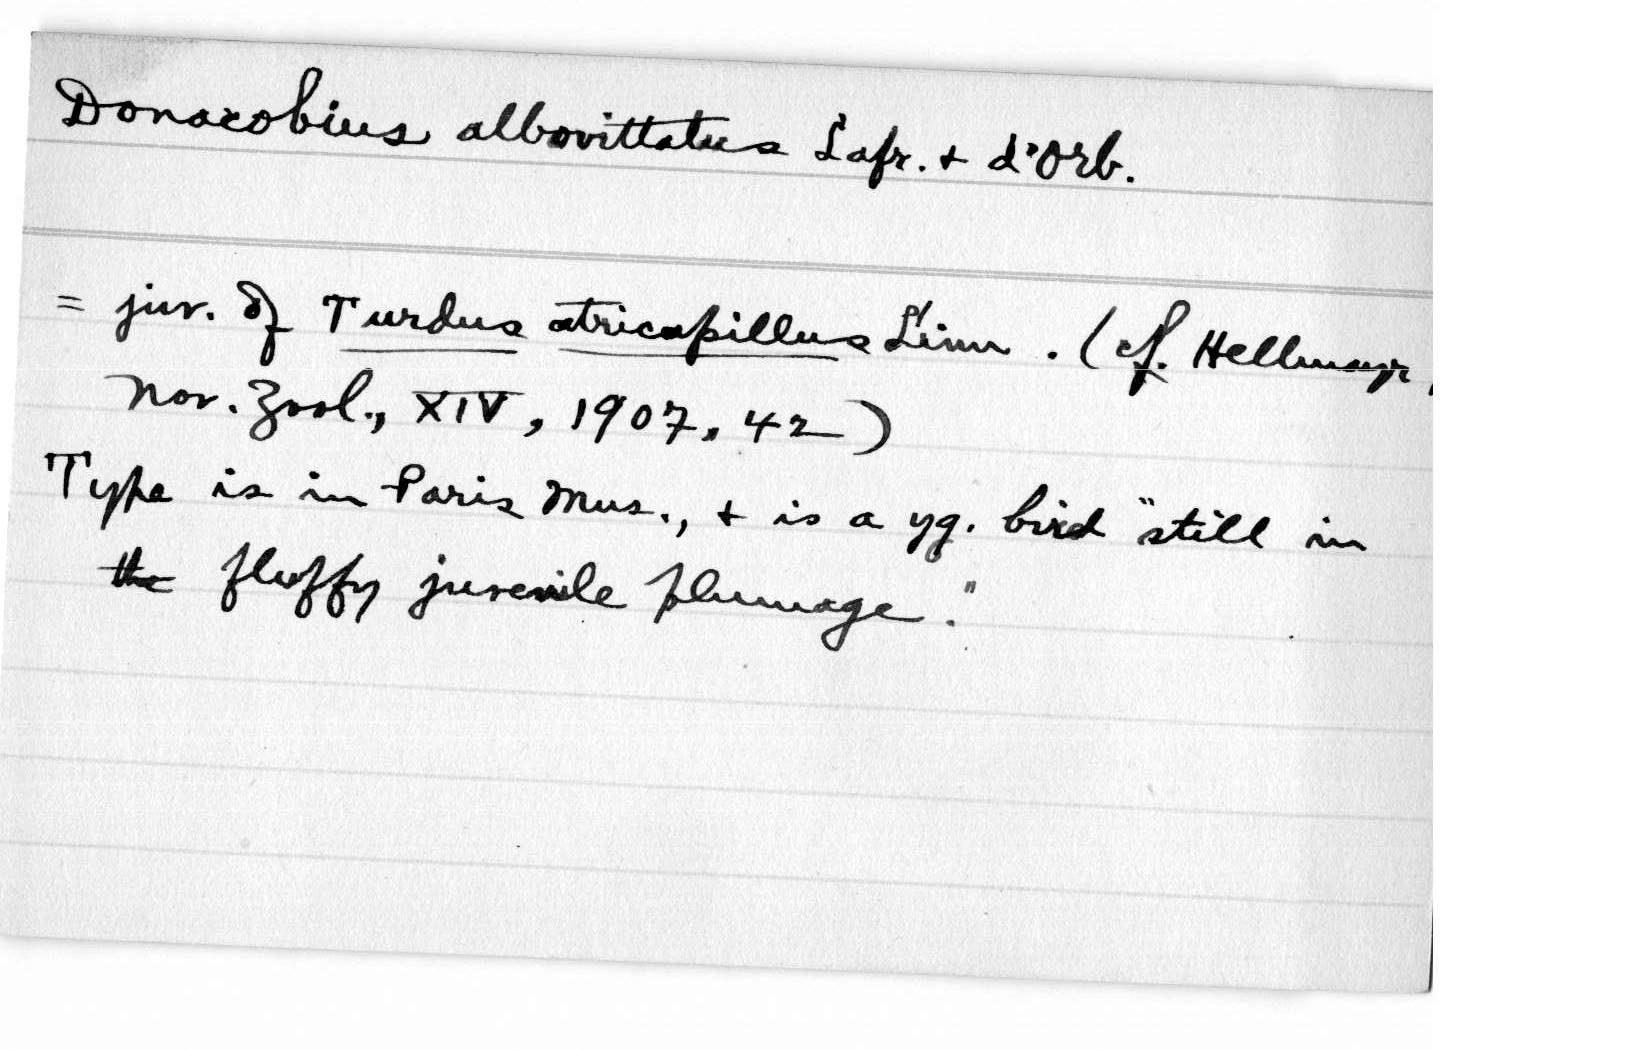 Donacobius albovittatus Lafr. + d'Orb.
= juv. of Turdus atricapillus Linn. (cf. Hellmayr,
Nov. Zool., XIV, 1907, 42)
Type is in Paris Mus., + is a yg. bird "still in
the fluffy juvenile plumage."